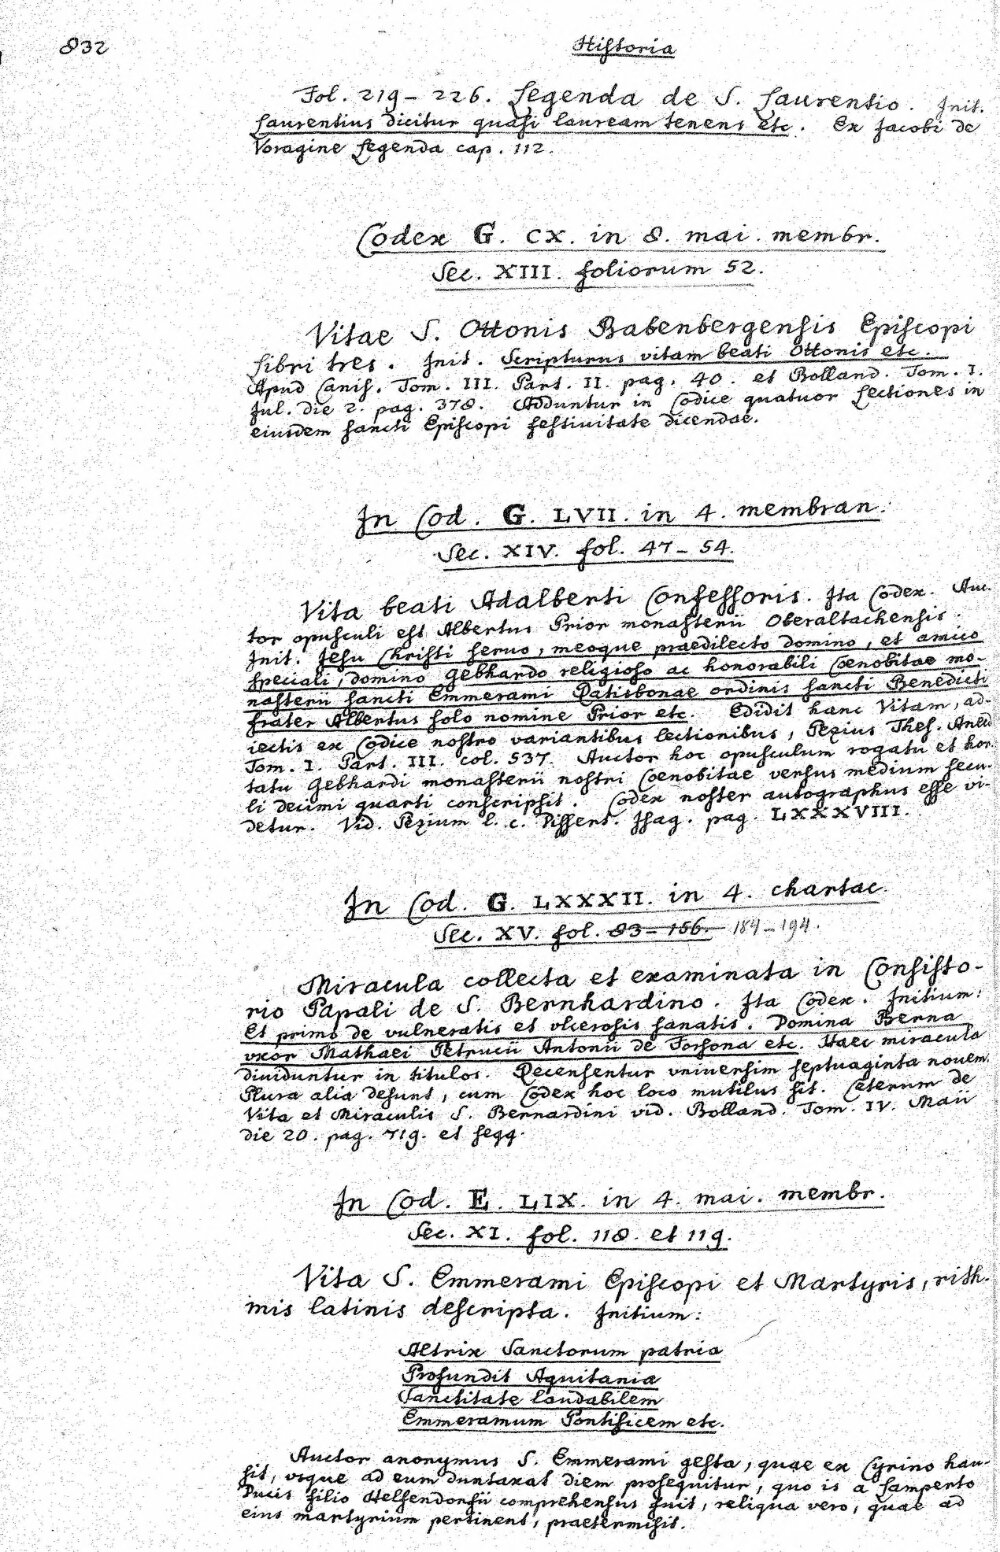 832
Historia
Fol. 219 – 226. Legenda de S. Laurentio. Init.
Laurentius dicitur quasi lauream tenens etc. Ex Jacobi de
Voragine Legenda cap. 112.
Codex G. CX. in 8. mai. membr.
Sec. XIII. foliorum 52.
Vitae S. Ottonis Babenbergensis Episcopi
libri tres. Init. Scripturus vitam beati Ottonis etc.
Apud Canis. Tom. III. Part. II. pag. 40. et Bolland. Tom. I.
Jul. die 2. pag. 378. Adduntur in Codice quatuor Lectiones in
eiusdem sancti Episcopi festiuitate dicendae.
In Cod. G. LVII. in 4. membran.
Sec. XIV. fol. 47 – 54.
Vita beati Adalberti Confessoris. Ita Codex. Auc-
tor opusculi est Albertus Prior monasterii Oberaltachensis.
Init. Jesu Christi seruo, meoque praedilecto domino, et amico
speciali, domino Gebhardo religioso ac honorabili Coenobitae mo-
nasterii sancti Emmerami Ratisbonae ordinis sancti Benedicti
frater Albertus solo nomine Prior etc. Edidit hanc Vitam, ad-
iectis ex Codice nostro variantibus lectionibus, Pezius Thes. Anecd
Tom. I. Part. III. col. 537. Auctor hoc opusculum rogatu et hor-
tatu Gebhardi monasterii nostri Coenobitae versus medium secu-
li decimi quarti conscripsit. Codex noster autographus esse vi-
detur. Vid. Pezium l. c. Dissert. Isag. pag. LXXXVIII.
In Cod. G. LXXXII. in 4. chartac.
Sec. XV. fol. 83 – 156. 184 – 194.
Miracula collecta et examinata in Consisto-
rio Papali de S. Bernhardino. Ita Codex. Initium:
Et primo de vulneratis et vlcerosis sanatis. Domina Berna
vxor Mathaei Petrucii Antonii de Forsona etc. Haec miracula
diuiduntur in titulos. Recensentur vniuersim septuaginta nouem.
Plura alia desunt, cum Codex hoc loco mutilus sit. Ceterum de
Vita et Miraculis S. Bernardini vid. Bolland. Tom. IV. Maii
die 20. pag. 719. et seqq.
In Cod. E. LIX. in 4. mai. membr.
Sec. XI. fol. 118. et 119.
Vita S. Emmerami Episcopi et Martyris, rith-
mis latinis descripta. Initium:
Altrix Sanctorum patria
Profundit Aquitania
Sanctitate laudabilem
Emmeramum Pontificem etc.
Auctor anonymus S. Emmerami gesta, quae ex Cyrino hau-
sit, vsque ad eum duntaxat diem prosequitur, quo is a Lamperto
Ducis filio Helfendorfii comprehensus fuit, reliqua vero, quae ad
eius martyrium pertinent, praetermisit.